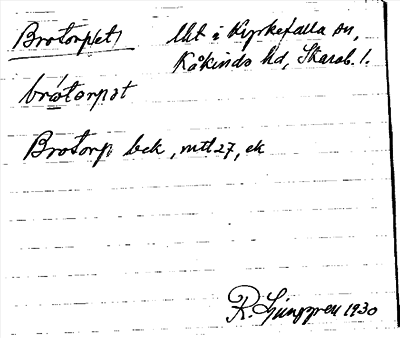 Brotorpet lht i Kyrkefalla sn,
Kåkinds hd, Skarab. l.
brotorpət
Brotorp bek, mtl 27, ek
R. Ljunggren 1930